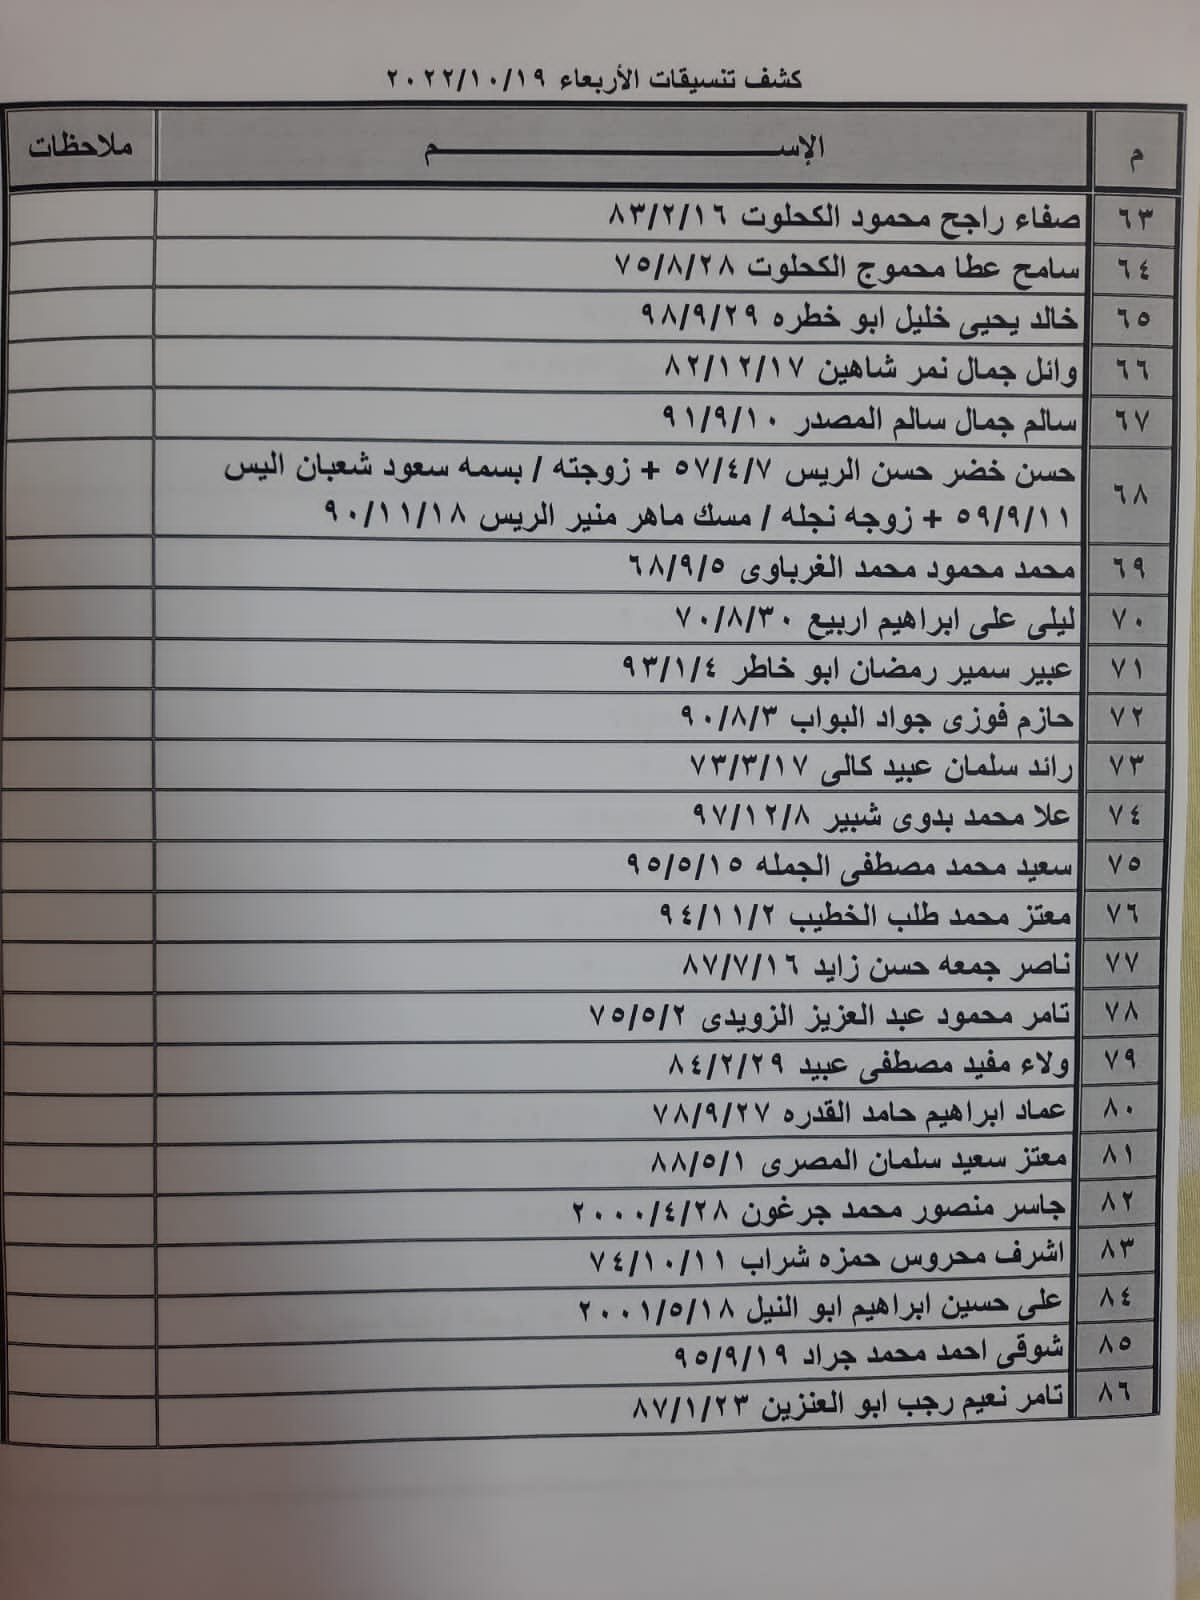 كشف تنسيقات الأربعاء ٢٠٢٢/١٠/١٩
م الإســـــــــــــــــــــــم ملاحظات
٦٣ صفاء راجح محمود الكحلوت ٨٣/٢/١٦
٦٤ سامح عطا محموج الكحلوت ٧٥/٨/٢٨
٦٥ خالد يحيى خليل ابو خطره ٩٨/٩/٢٩
٦٦ وائل جمال نمر شاهين ٨٢/١٢/١٧
٦٧ سالم جمال سالم المصدر ٩١/٩/١٠
٦٨ حسن خضر حسن الريس ٥٧/٤/٧ + زوجته / بسمه سعود شعبان اليس
٥٩/٩/١١ + زوجه نجله / مسك ماهر منير الريس ٩٠/١١/١٨
٦٩ محمد محمود محمد الغرباوى ٦٨/٩/٥
٧٠ ليلى على ابراهيم اربيع ٧٠/٨/٣٠
٧١ عبير سمير رمضان ابو خاطر ٩٣/١/٤
٧٢ حازم فوزى جواد البواب ٩٠/٨/٣
٧٣ رائد سلمان عبيد كالى ٧٣/٣/١٧
٧٤ علا محمد بدوى شبير ٩٧/١٢/٨
٧٥ سعيد محمد مصطفى الجمله ٩٥/٥/١٥
٧٦ معتز محمد طلب الخطيب ٩٤/١١/٢
٧٧ ناصر جمعه حسن زايد ٨٧/٧/١٦
٧٨ تامر محمود عبد العزيز الزويدى ٧٥/٥/٢
٧٩ ولاء مفيد مصطفى عبيد ٨٤/٢/٢٩
٨٠ عماد ابراهيم حامد القدره ٧٨/٩/٢٧
٨١ معتز سعيد سلمان المصرى ٨٨/٥/١
٨٢ جاسر منصور محمد جرغون ٢٠٠٠/٤/٢٨
٨٣ اشرف محروس حمزه شراب ٧٤/١٠/١١
٨٤ على حسين ابراهيم ابو النيل ٢٠٠١/٥/١٨
٨٥ شوقى احمد محمد جراد ٩٥/٩/١٩
٨٦ تامر نعيم رجب ابو العنزين ٨٧/١/٢٣